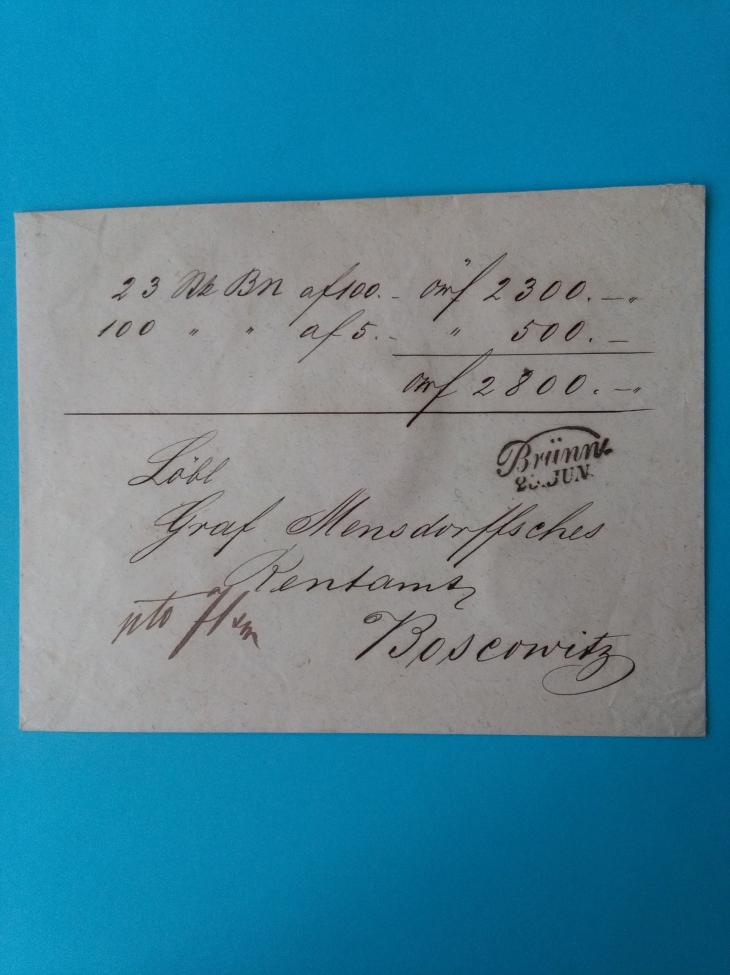 23 Stk BN af 100.- öwf 2300.-"
100 " " af 5.- " 500.-
öwf 2800.-"
Brünn
JUN.
Löbl
Graf Mensdorffsches
Rentamt
pto
Boscowitz